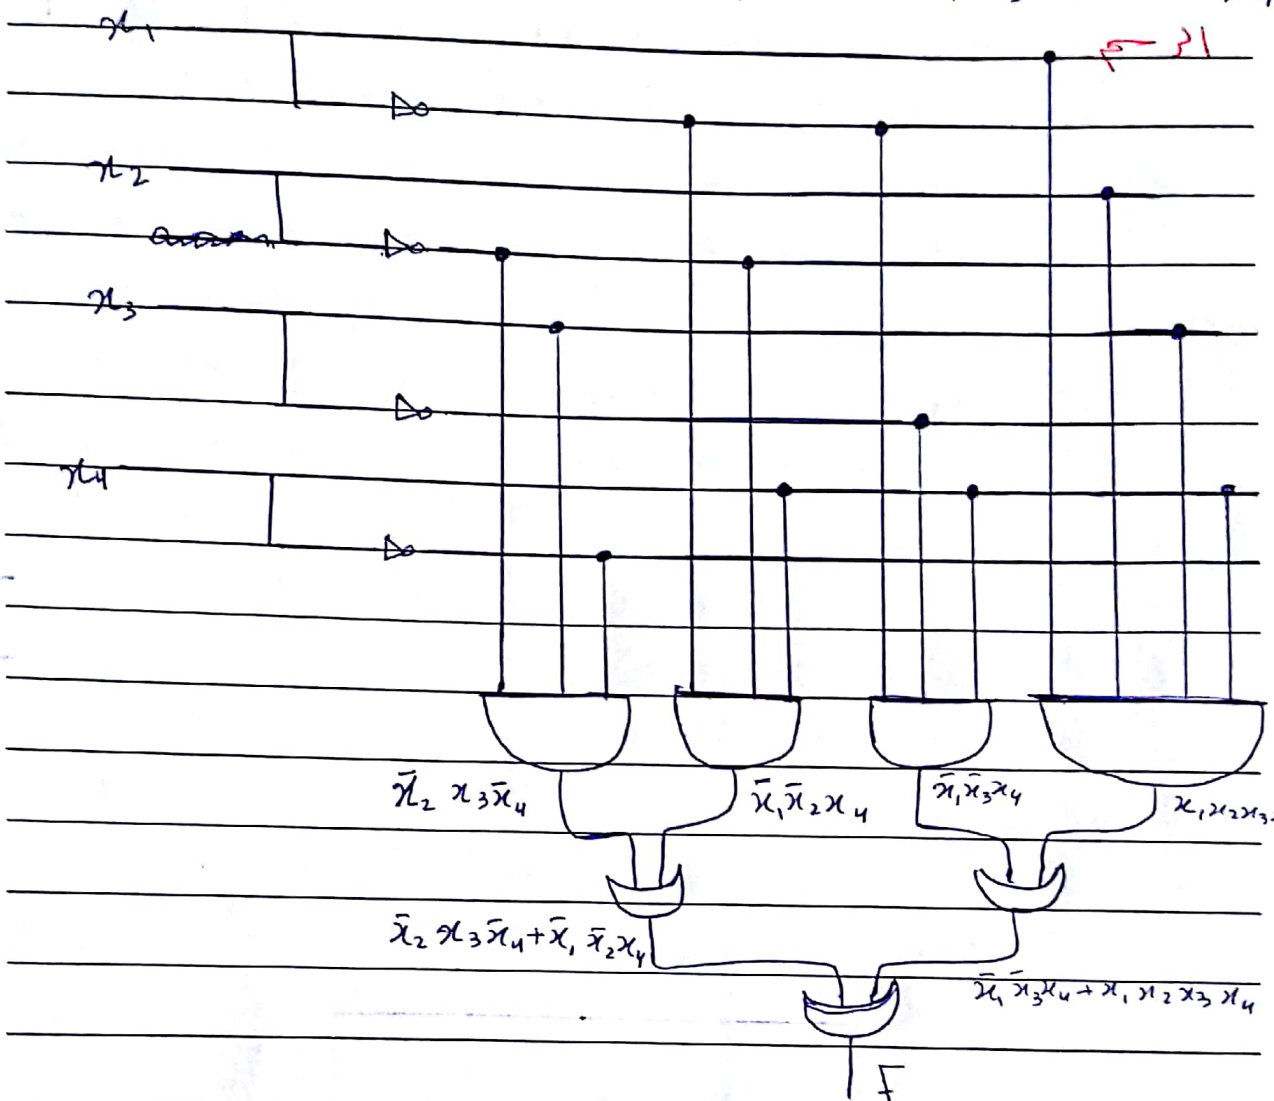 x₁
x₂
x₃
x₄
x̄₂ x₃x̄₄
x̄₁x̄₂x₄
x̄₁x̄₃x₄
x₁x₂x₃
x̄₂ x₃x̄₄+x̄₁ x̄₂x₄
x̄₁x̄₃x₄+x₁x₂x₃x₄
F